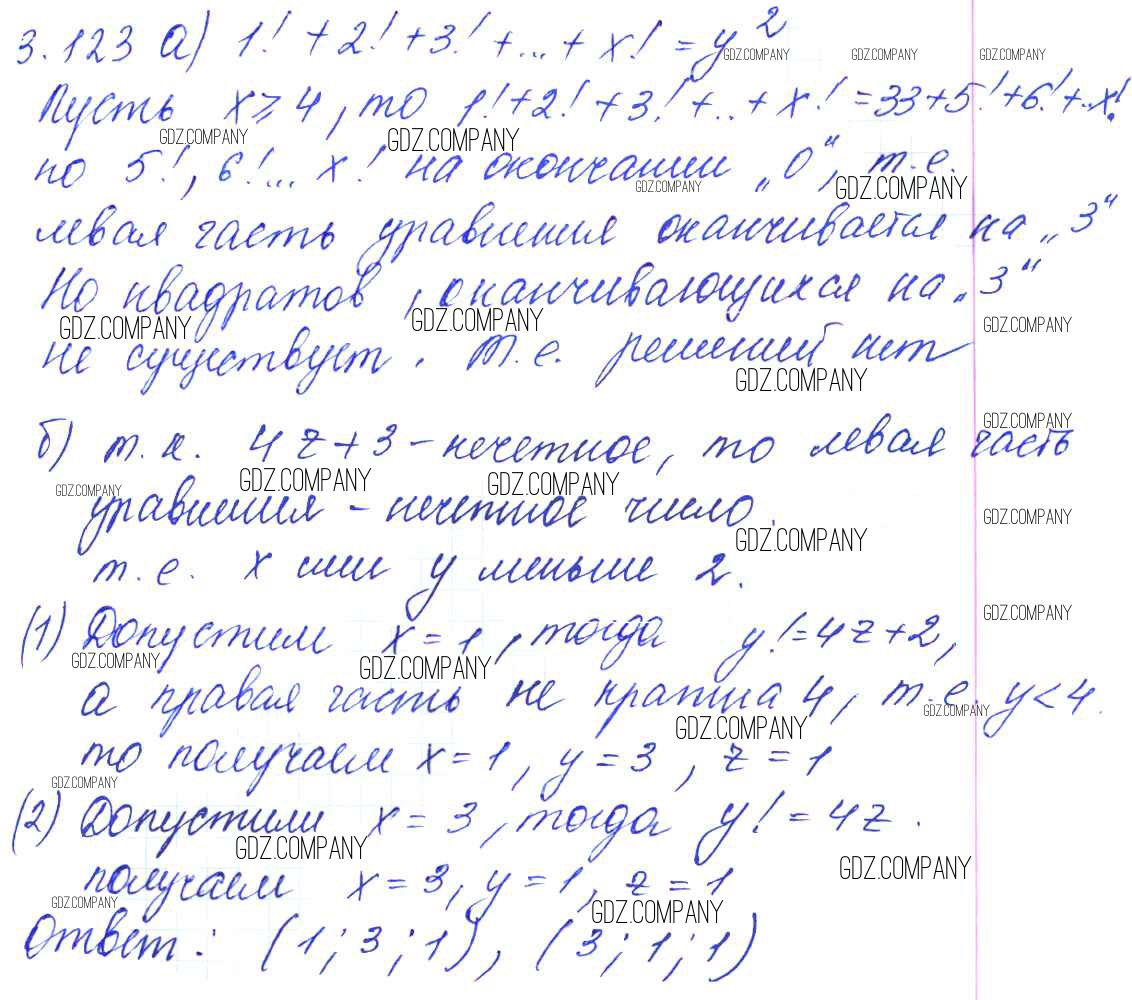 3.123 а) 1! + 2! + 3! + ... + x! = y²
GDZ.COMPANY GDZ.COMPANY GDZ.COMPANY
Пусть x ⩾ 4, то 1! + 2! + 3! + .. + x! = 33 + 5! + 6! + .. x!
GDZ.COMPANY GDZ.COMPANY
но 5!, 6! ... x! на окончании „0“, т.е.
GDZ.COMPANY GDZ.COMPANY
левая часть уравнения оканчивается на „3“
Но квадратов, оканчивающихся на „3“
GDZ.COMPANY GDZ.COMPANY GDZ.COMPANY
не существует. Т.е. решений нет
GDZ.COMPANY
GDZ.COMPANY
б) т.к. 4z + 3 – нечетное, то левая часть
GDZ.COMPANY GDZ.COMPANY GDZ.COMPANY
уравнения – нечетное число.
GDZ.COMPANY GDZ.COMPANY
т.е. x или y меньше 2.
GDZ.COMPANY
(1) Допустим x = 1, тогда y! = 4z + 2,
GDZ.COMPANY GDZ.COMPANY
а правая часть не кратна 4, т.е. y < 4.
GDZ.COMPANY GDZ.COMPANY
то получаем x = 1, y = 3, z = 1
GDZ.COMPANY
(2) Допустили x = 3, тогда y! = 4z.
GDZ.COMPANY GDZ.COMPANY
получаем x = 3, y = 1, z = 1
GDZ.COMPANY GDZ.COMPANY
Ответ: (1; 3; 1), (3; 1; 1)